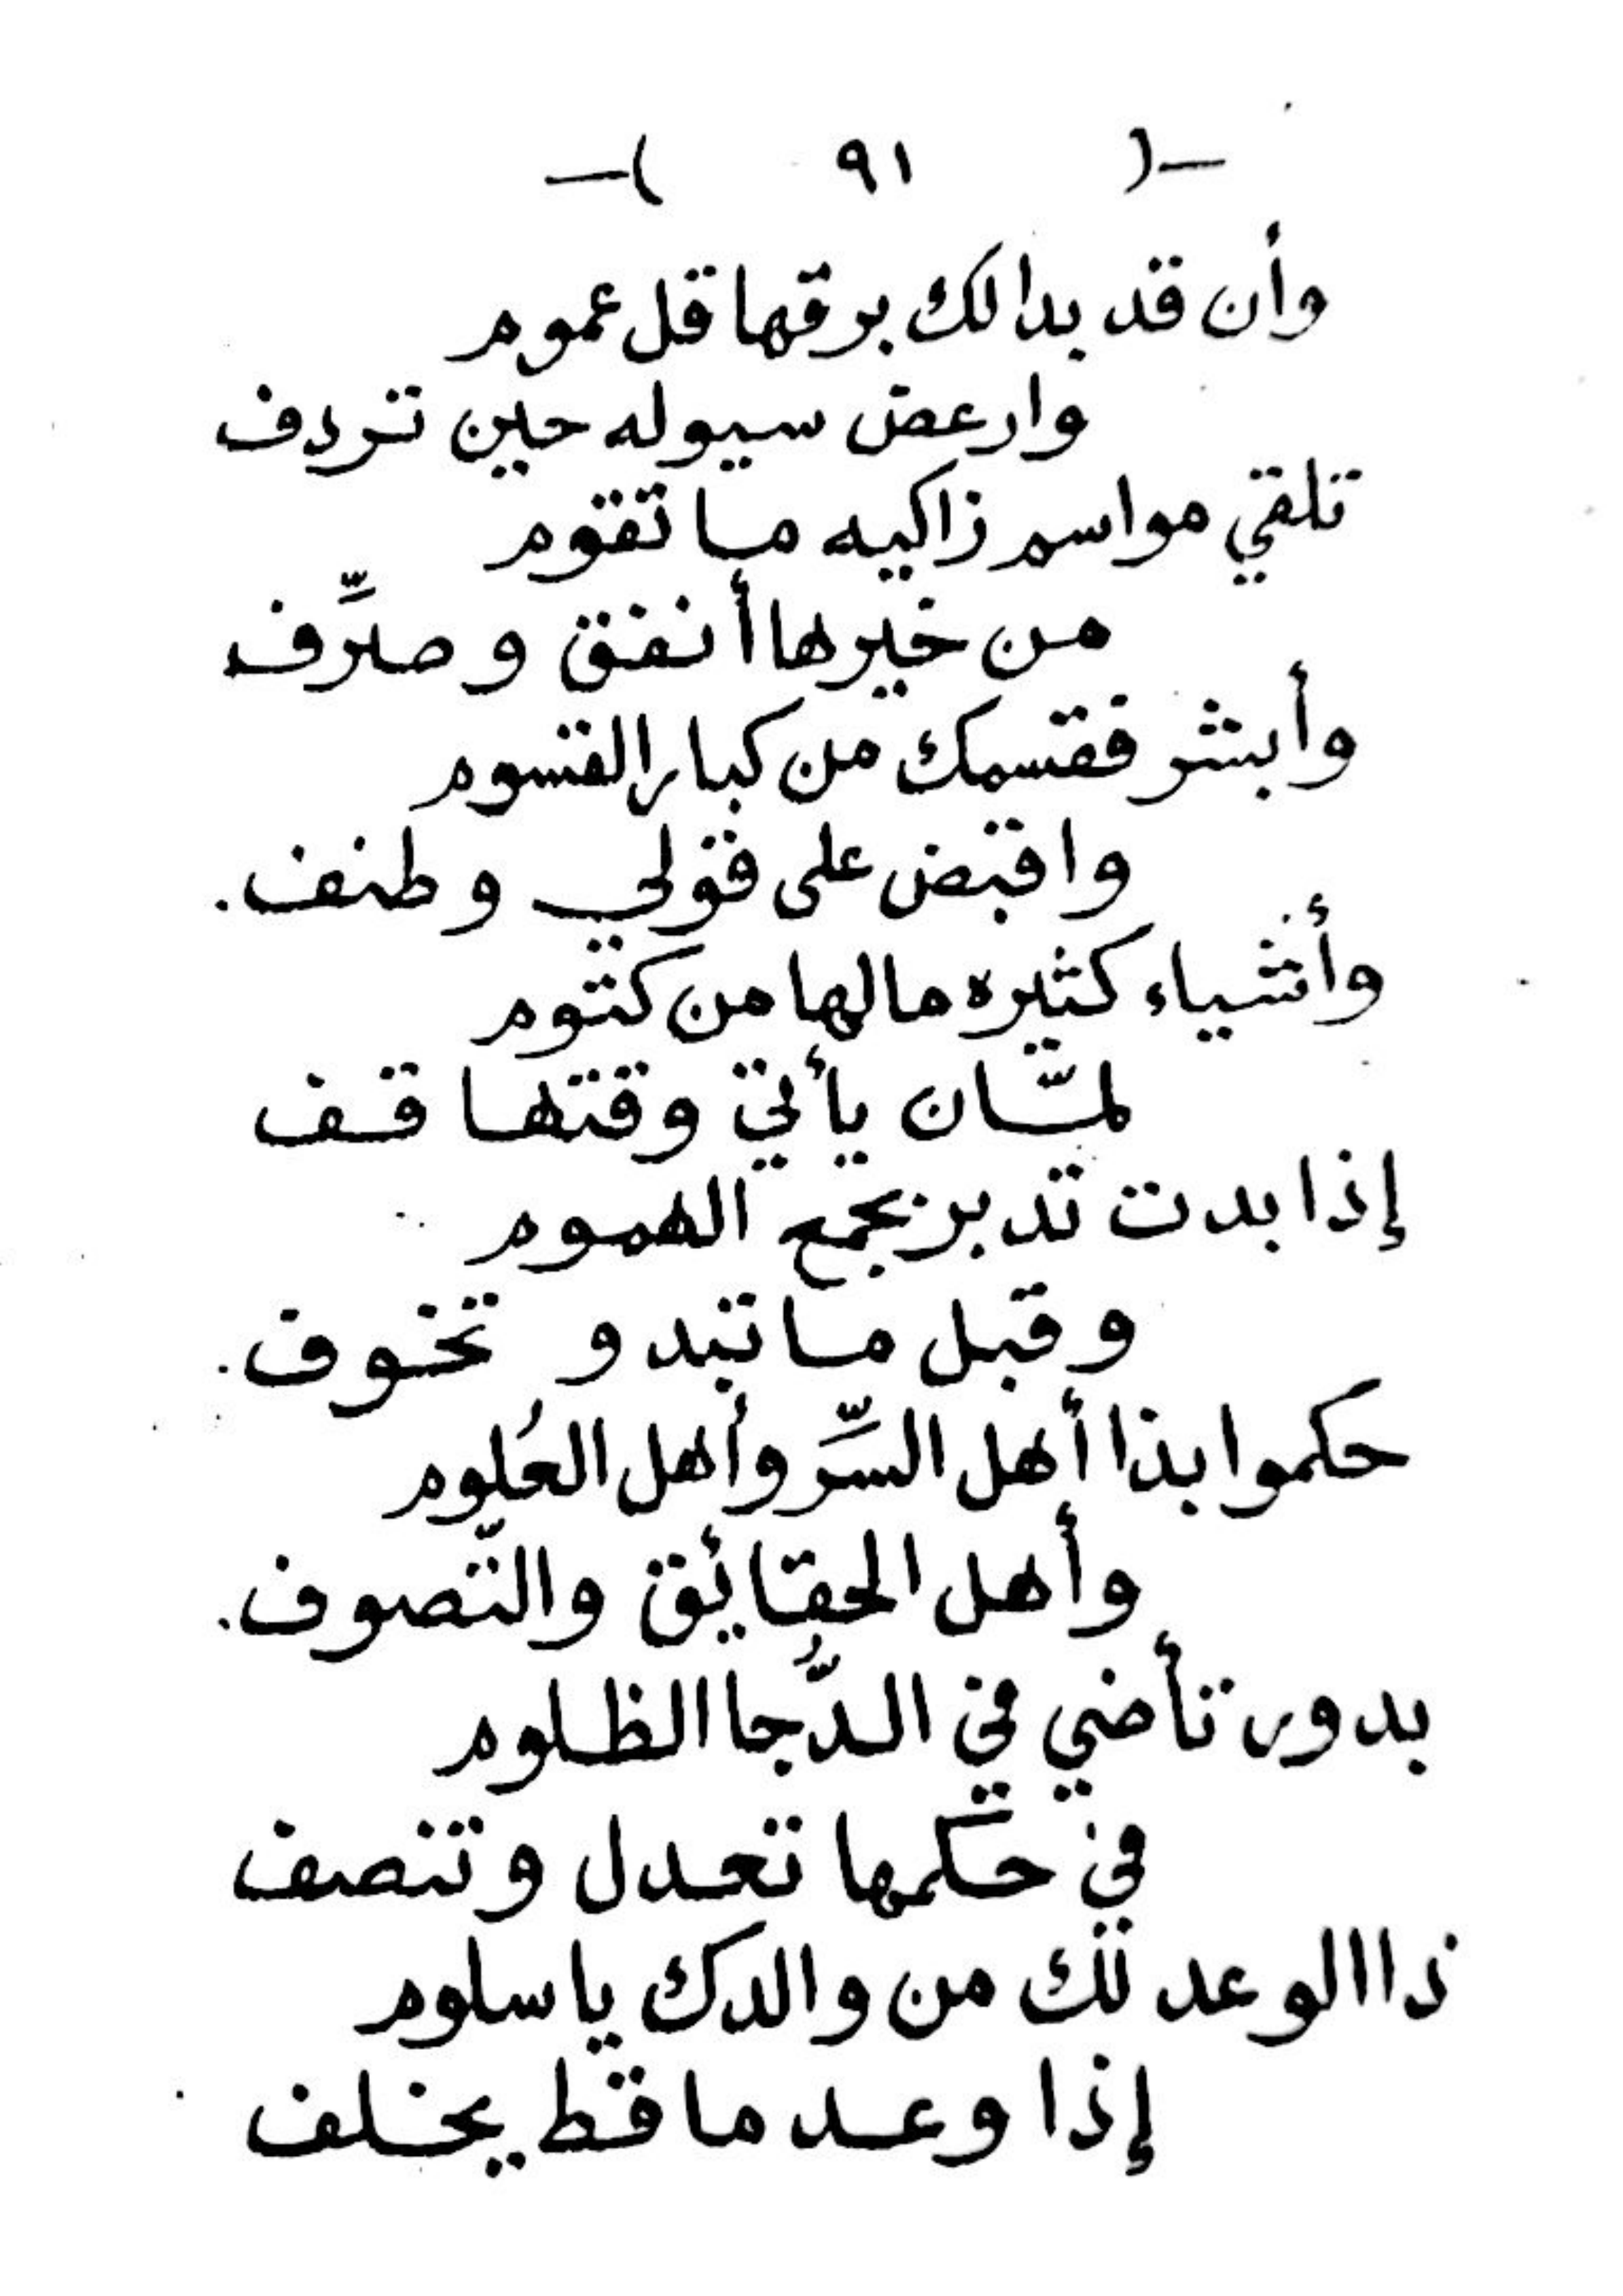 -( ٩١ )-
وأن قد بدالك برقها قل عموم
وارعض سيوله حين تردف
تلقي مواسم زاكيه ما تقوم
من خيرها أنفق وصرِّف
وأبشر فقسمك من كبار القسوم
واقبض على قولي وطنف.
وأشياء كثيره مالها من كتوم
لمّان يأتي وقتها قف
إذا بدت تدبر بجمع الهموم
وقبل ما تبدو تخوف.
حكموا بذا أهل السِّر وأهل العُلوم
وأهل الحقائق والتّصوف.
بدور تأضي في الدُّجا الظلوم
في حكمها تعدل وتنصف
ذا الوعد لك من والدك يا سلوم
إذا وعد ما قط يخلف